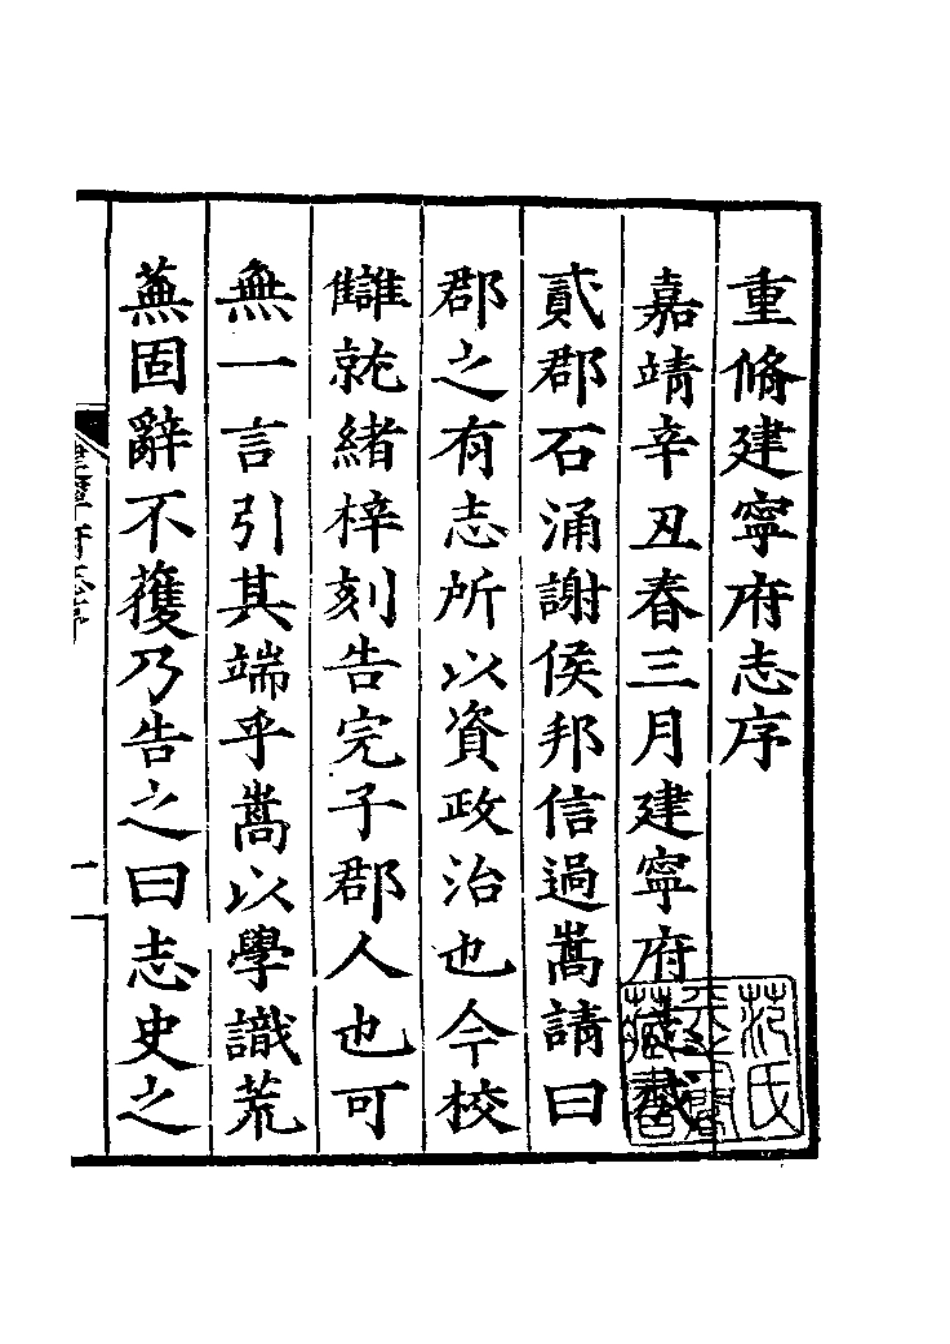 重脩建寧府志序
嘉靖辛丑春三月建寧府志成
貳郡石涌謝侯邦信過嵩請曰
郡之有志所以資政治也今校
讎就緒梓刻告完子郡人也可
無一言引其端乎嵩以學識荒
蕪固辭不獲乃告之曰志史之
建寧府志序
一
范氏
天一閣
藏書